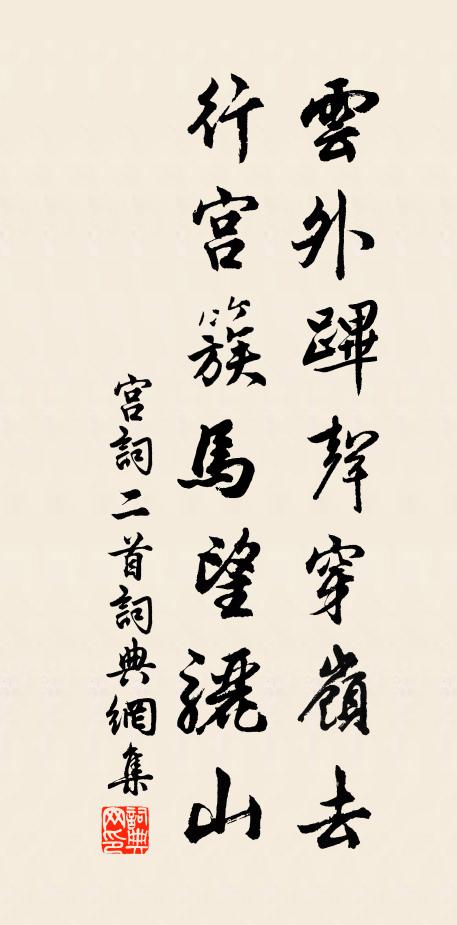 雲外蹕聲穿嶺去
行宮簇馬望驪山
宮詞二首詞典網集
詞典
网印